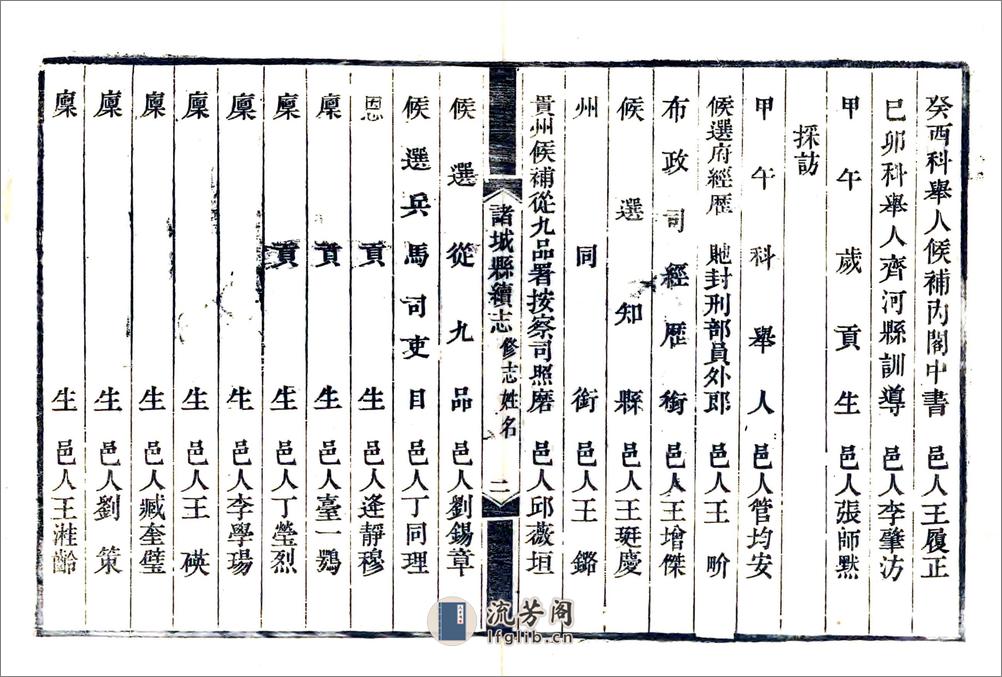 癸酉科舉人候補內閣中書 邑人王履正
己卯科舉人齊河縣訓導 邑人李肇汸
甲午歲貢生 邑人張師㸃
採訪
甲午科舉人 邑人管均安
候選府經歷 貤封刑部員外郎 邑人王 昤
布政司經歷銜 邑人王增傑
候選知縣 邑人王珽慶
州同銜 邑人王 鏴
貴州候補從九品署按察司照磨 邑人邱薇垣
諸城縣續志 修志姓名 二
候選從九品 邑人劉錫章
候選兵馬司吏目 邑人丁同理
恩貢生 邑人逄靜穆
廩貢生 邑人臺一鶚
廩貢生 邑人丁瑩烈
廩生 邑人李學瑒
廩生 邑人王 瑛
廩生 邑人臧奎璧
廩生 邑人劉 策
廩生 邑人王溎齡
流芳阁
lfglib.cn